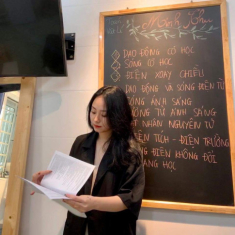 Vật Lý
DAO ĐỘNG CƠ HỌC
SÓNG CƠ HỌC
ĐIỆN XOAY CHIỀU
DAO ĐỘNG VÀ SÓNG ĐIỆN TỪ
SÓNG ÁNH SÁNG
TỬ ÁNH SÁNG
NHÂN NGUYÊN TỬ
ĐIỆN TÍCH - ĐIỆN TRƯỜNG
ĐIỆN KHÔNG ĐỔI
QUANG HỌC